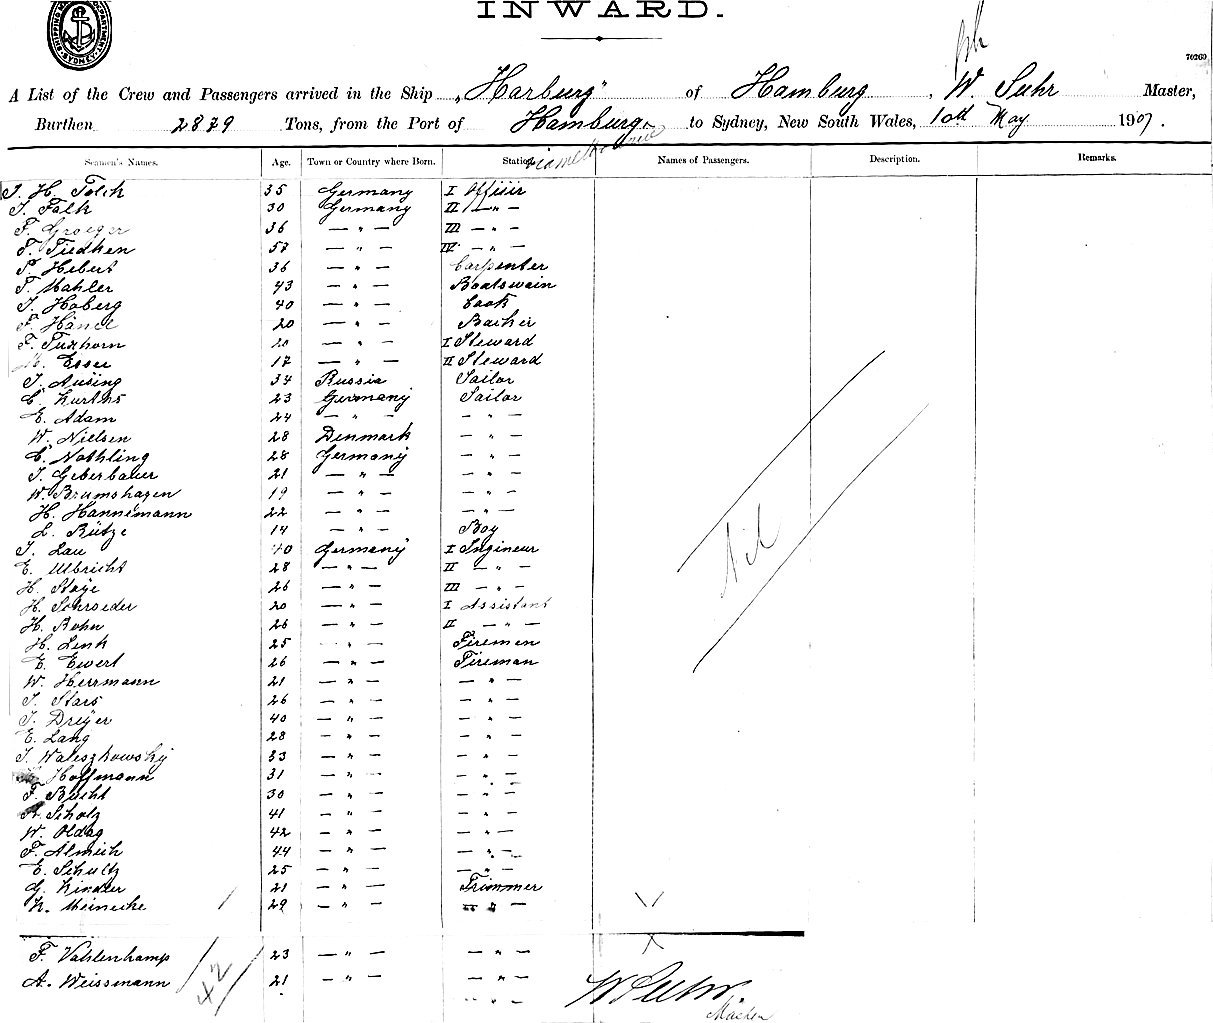 INWARD.
SHIPPING DEPARTMENT SYDNEY
70269
A List of the Crew and Passengers arrived in the Ship „Harburg" of Hamburg, W. Suhr Master,
Burthen 2879 Tons, from the Port of Hamburg to Sydney, New South Wales, 10th May 1907.
Seamen's Names. Age. Town or Country where Born. Station Names of Passengers. Description. Remarks.
J. H. Tolck 35 Germany I Offisir
J. Falk 30 Germany II — " —
F. Groeger 36 — " — III — " —
F. Tiedken 57 — " — IV — " —
P. Hebert 36 — " — Carpenter
F. Mahler 43 — " — Boatswain
J. Hoberg 40 — " — Cook
F. 20 — " —
F. Tuxhorn 20 — " — I Steward
Esser 17 — " — II Steward
J. Ausing 34 Russia Sailor
C. Kurths 23 Germany Sailor
E. Adam 24 — " — — " —
W. Nielsen 28 Denmark — " —
C. Nothling 28 Germany — " —
J. Geberbauer 21 — " — — " —
W. Brumshagen 19 — " — — " —
H. Hannemann 22 — " — — " —
L. Bütze 14 — " — Boy
J. Lau 40 Germany I Ingineur
E. Ulbricht 28 — " — II — " —
H. Stage 26 — " — III — " —
H. Schroeder 20 — " — I Assistant
H. Bohn 26 — " — II — " —
H. Link 25 — " — Firemen
E. Ewert 26 — " — Fireman
W. Herrmann 21 — " — — " —
J. Stars 26 — " — — " —
J. Dreÿer 40 — " — — " —
E. Lang 28 — " — — " —
J. Waleszkowsky 33 — " — — " —
Hoffmann 31 — " — — " —
F. Bucht 30 — " — — " —
Scholz 41 — " — — " —
W. Oldag 42 — " — — " —
F. Almich 44 — " — — " —
E. Schultz 25 — " — — " —
G. Kinder 21 — " — Trimmer
K. Meinecke 29 — " — — " —
F. Vahlenkamp 23 — " — — " —
A. Weissmann 21 — " — — " —
Nil
42
W Suhr.
Master